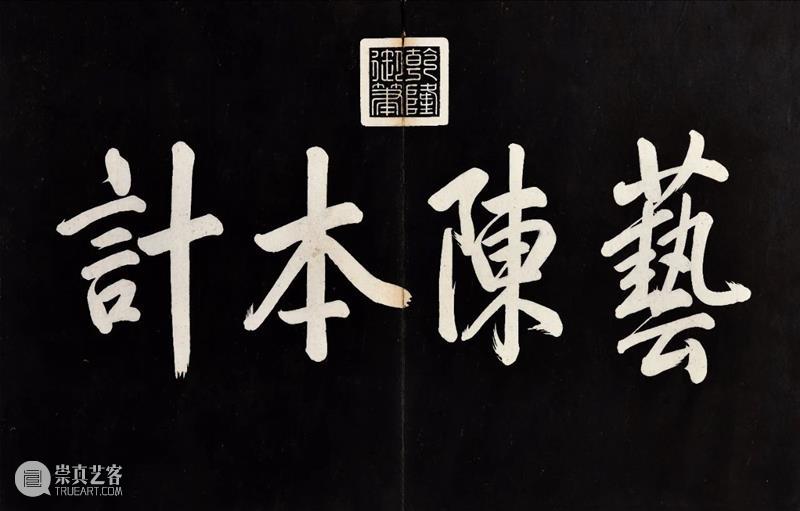 乾隆
御筆
藝陳本計
崇真艺客
TRUEART.COM